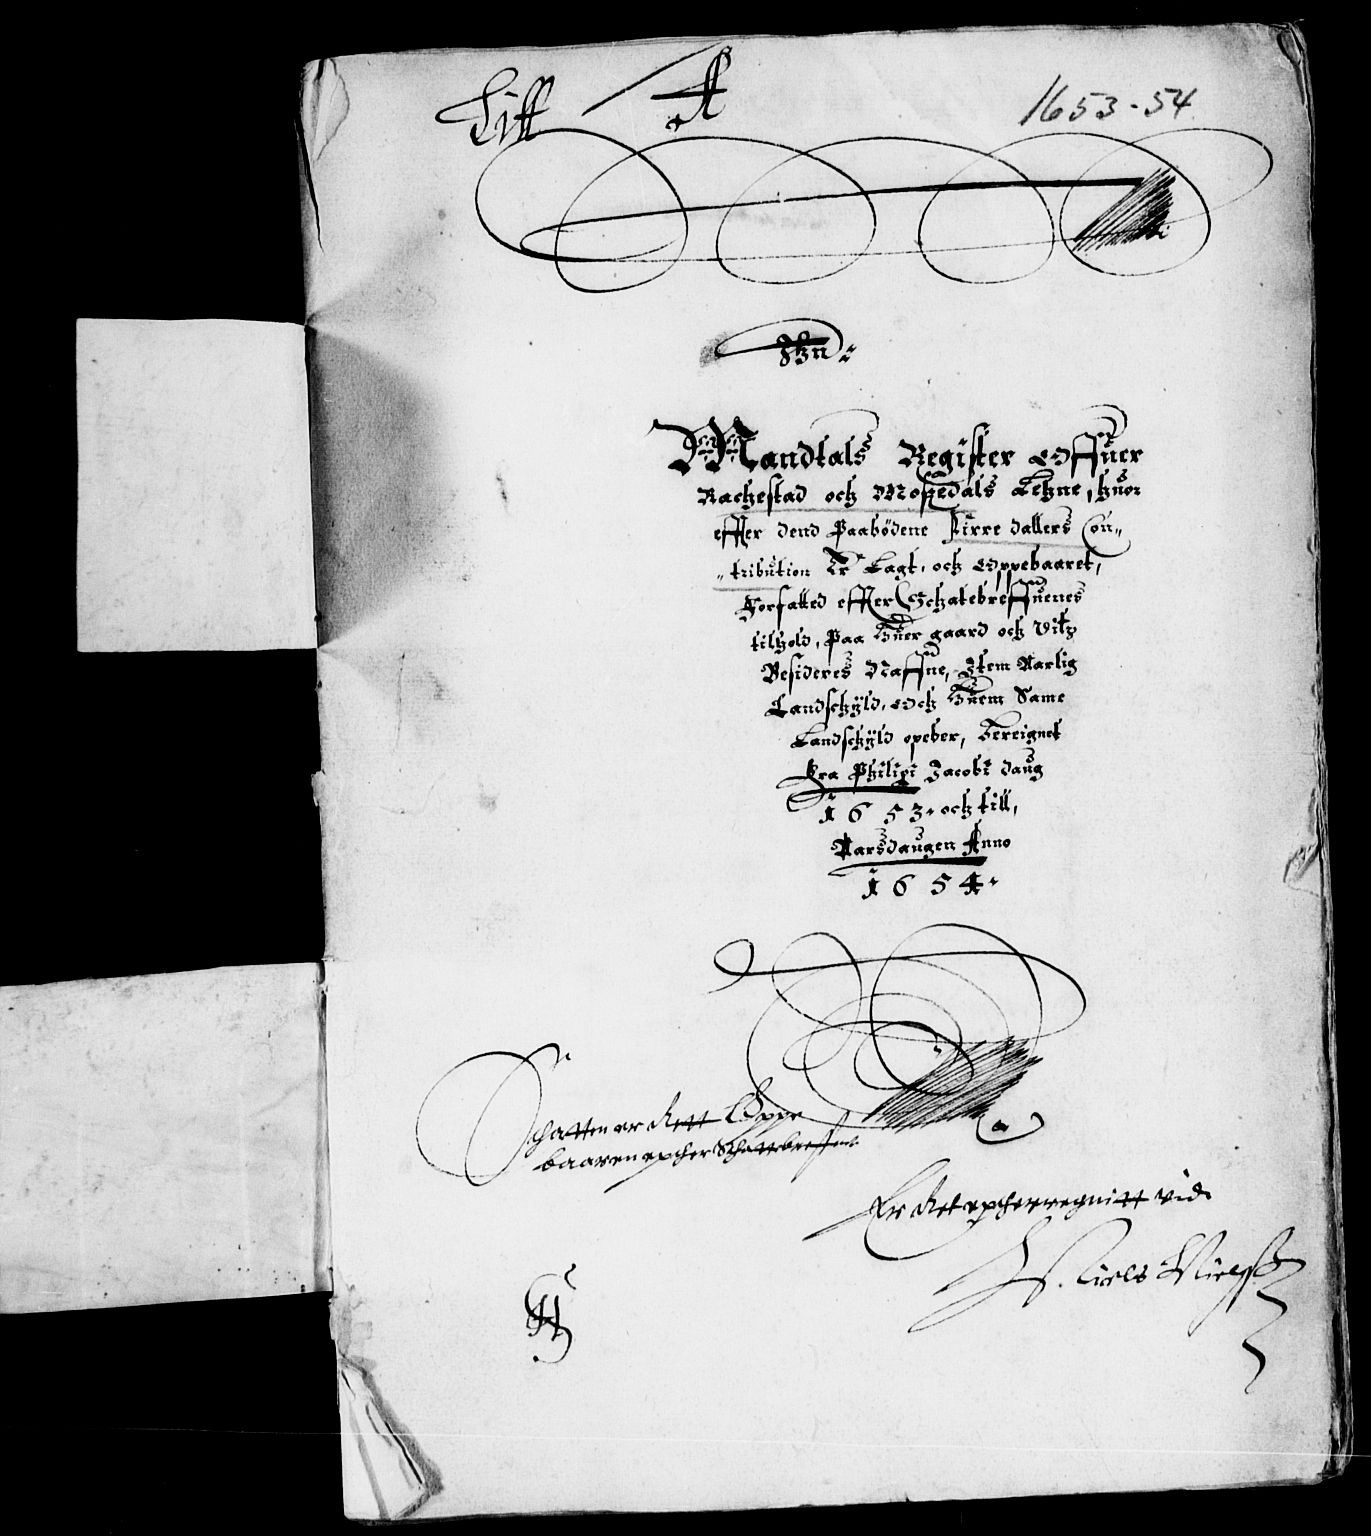 Litt A
1653-54
Ihn:
Mandtals Register Offuer
Rachestad och Mossedals Lehne, huor
effter dend Paabödene Firre dallers Con„
„tribution Er Lagt, och Oppebaaret,
Forfatted effter Schatebreffuenes
tilhold, Paa huer gaard och
Besideres Naffne, Item Aarlig
Landschÿld, Och huem Same
Landschÿld opeber, bereignet
Fra Philipi Jacobi daug
1653. och till,
Aarsdaugen Anno
1654.
Schatten er Rett Oppe
baaren epther Schattebreffene
Er Ret epther regnitt vid
Niels Nielß